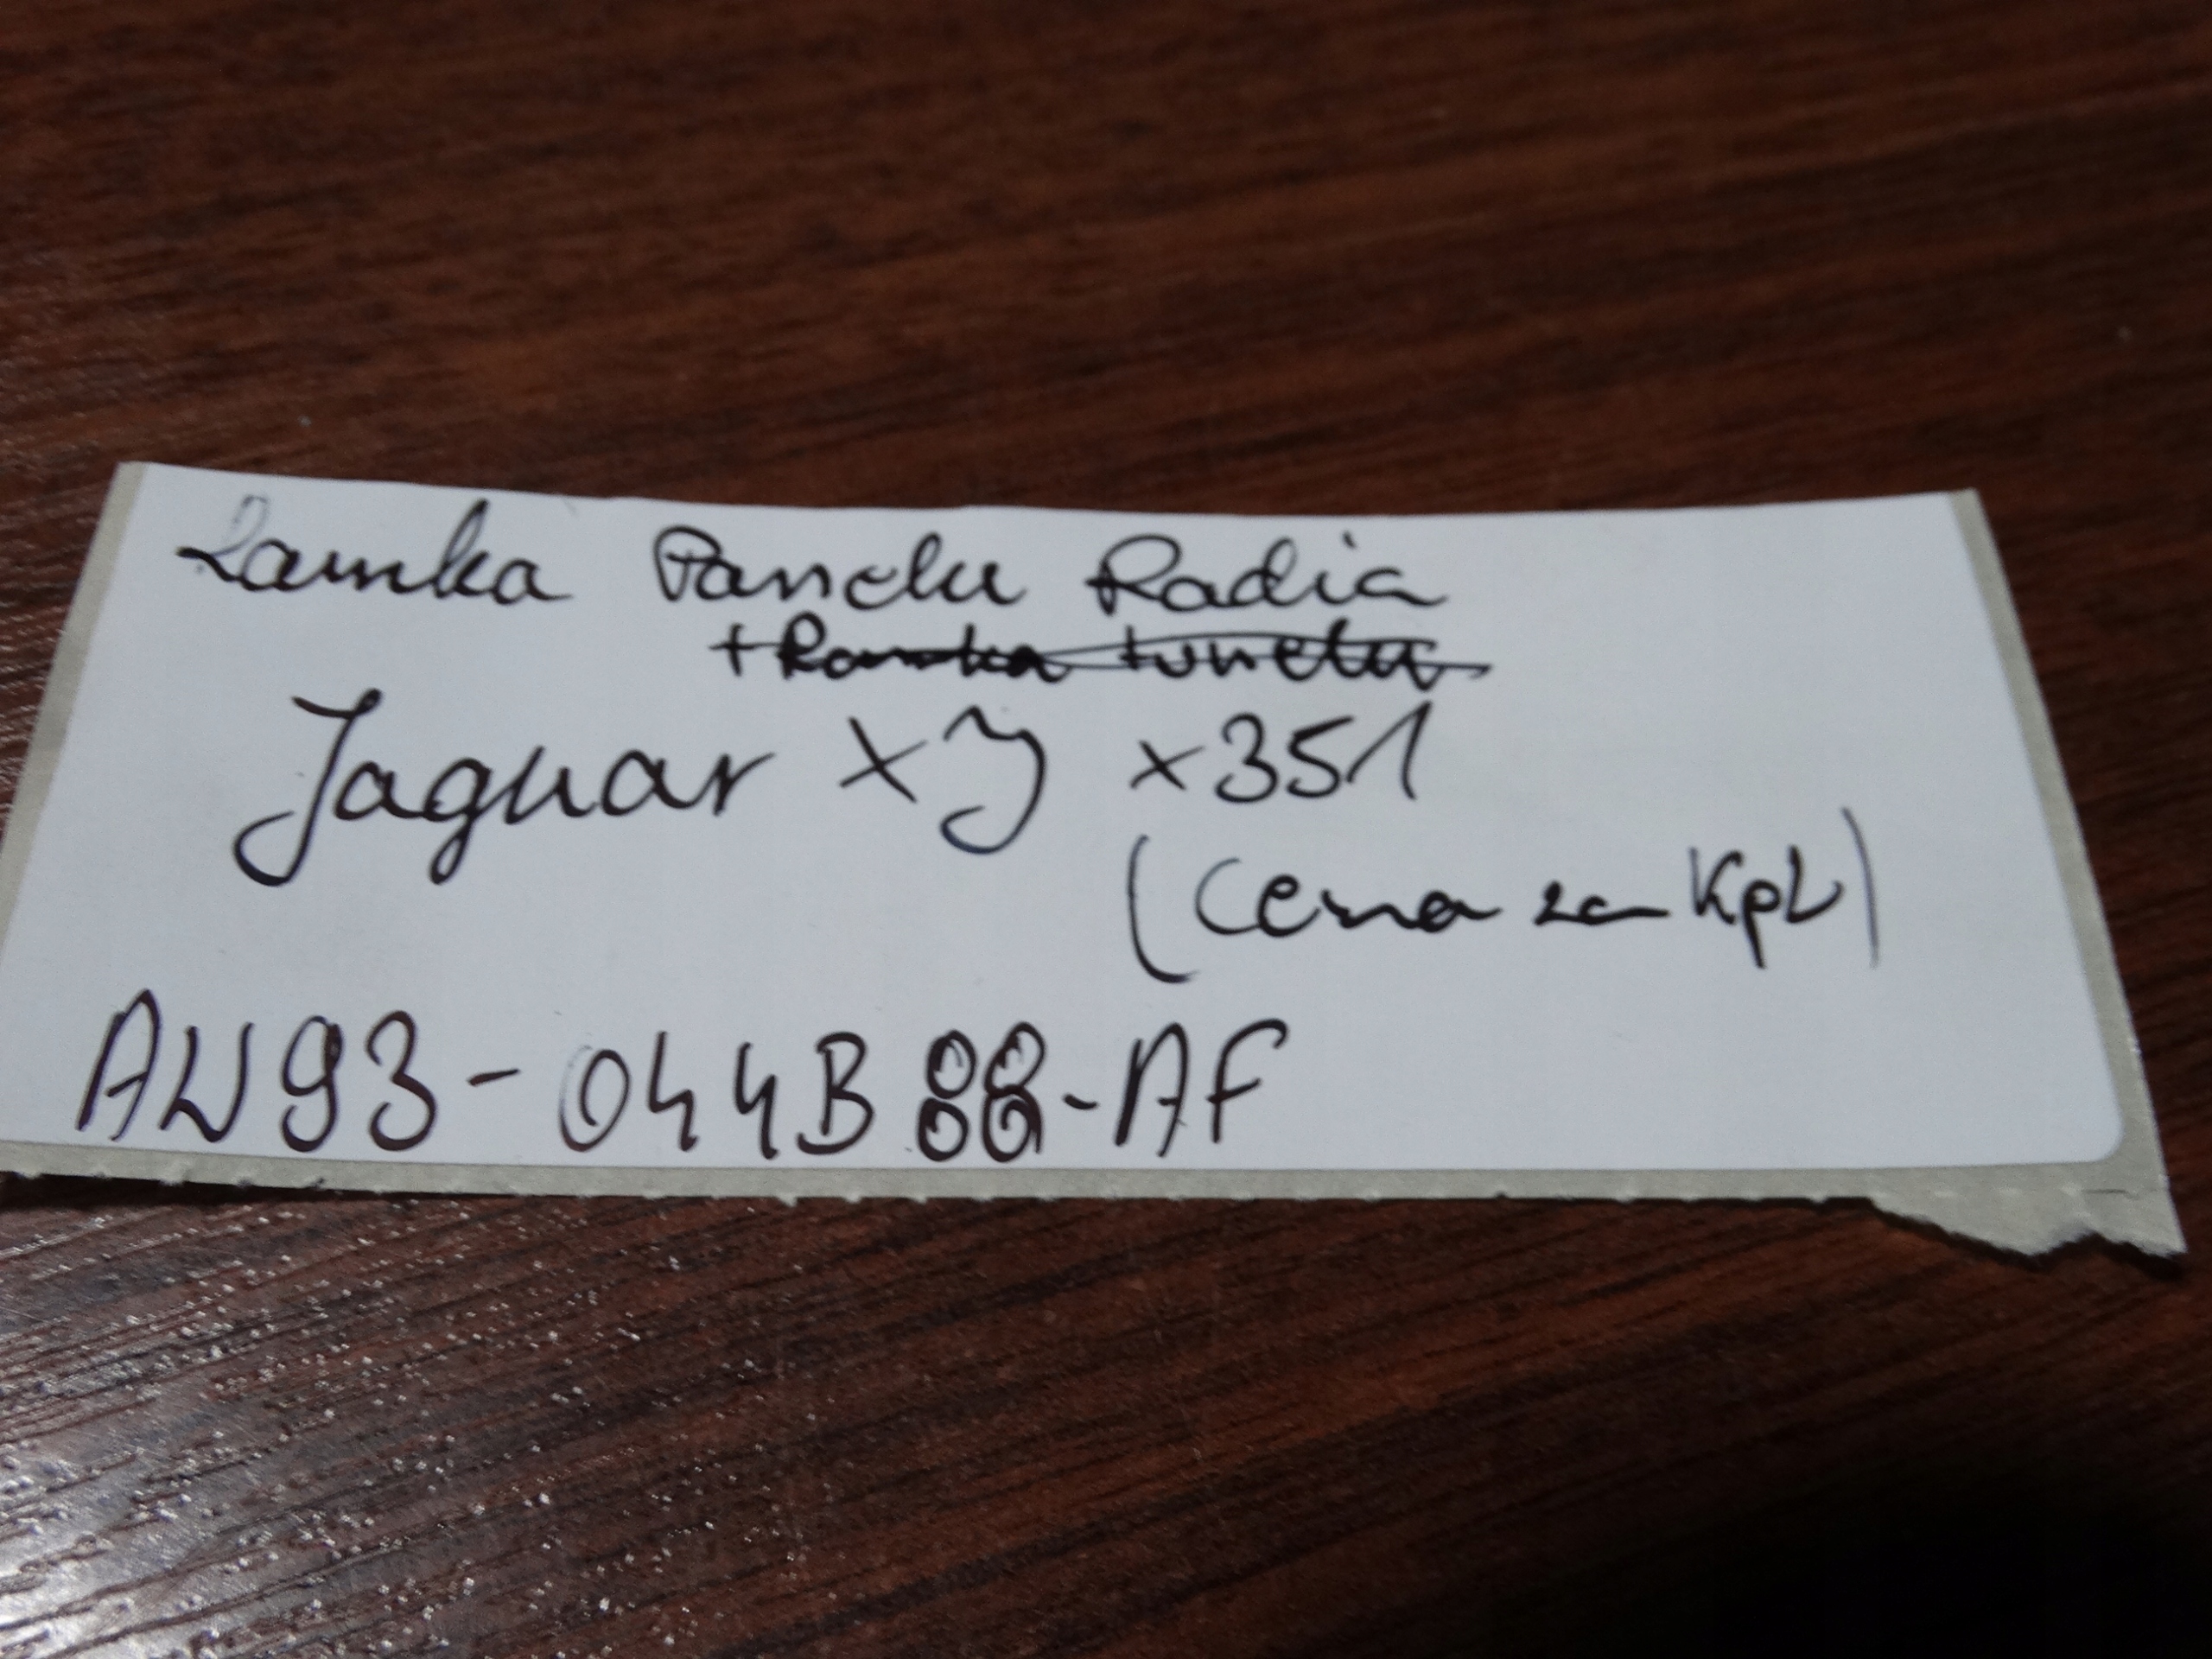 Ramka Panelu Radia
+ Ramka tunelu
Jaguar XJ x351
(Cena za Kpl)
AW93-044B88-AF